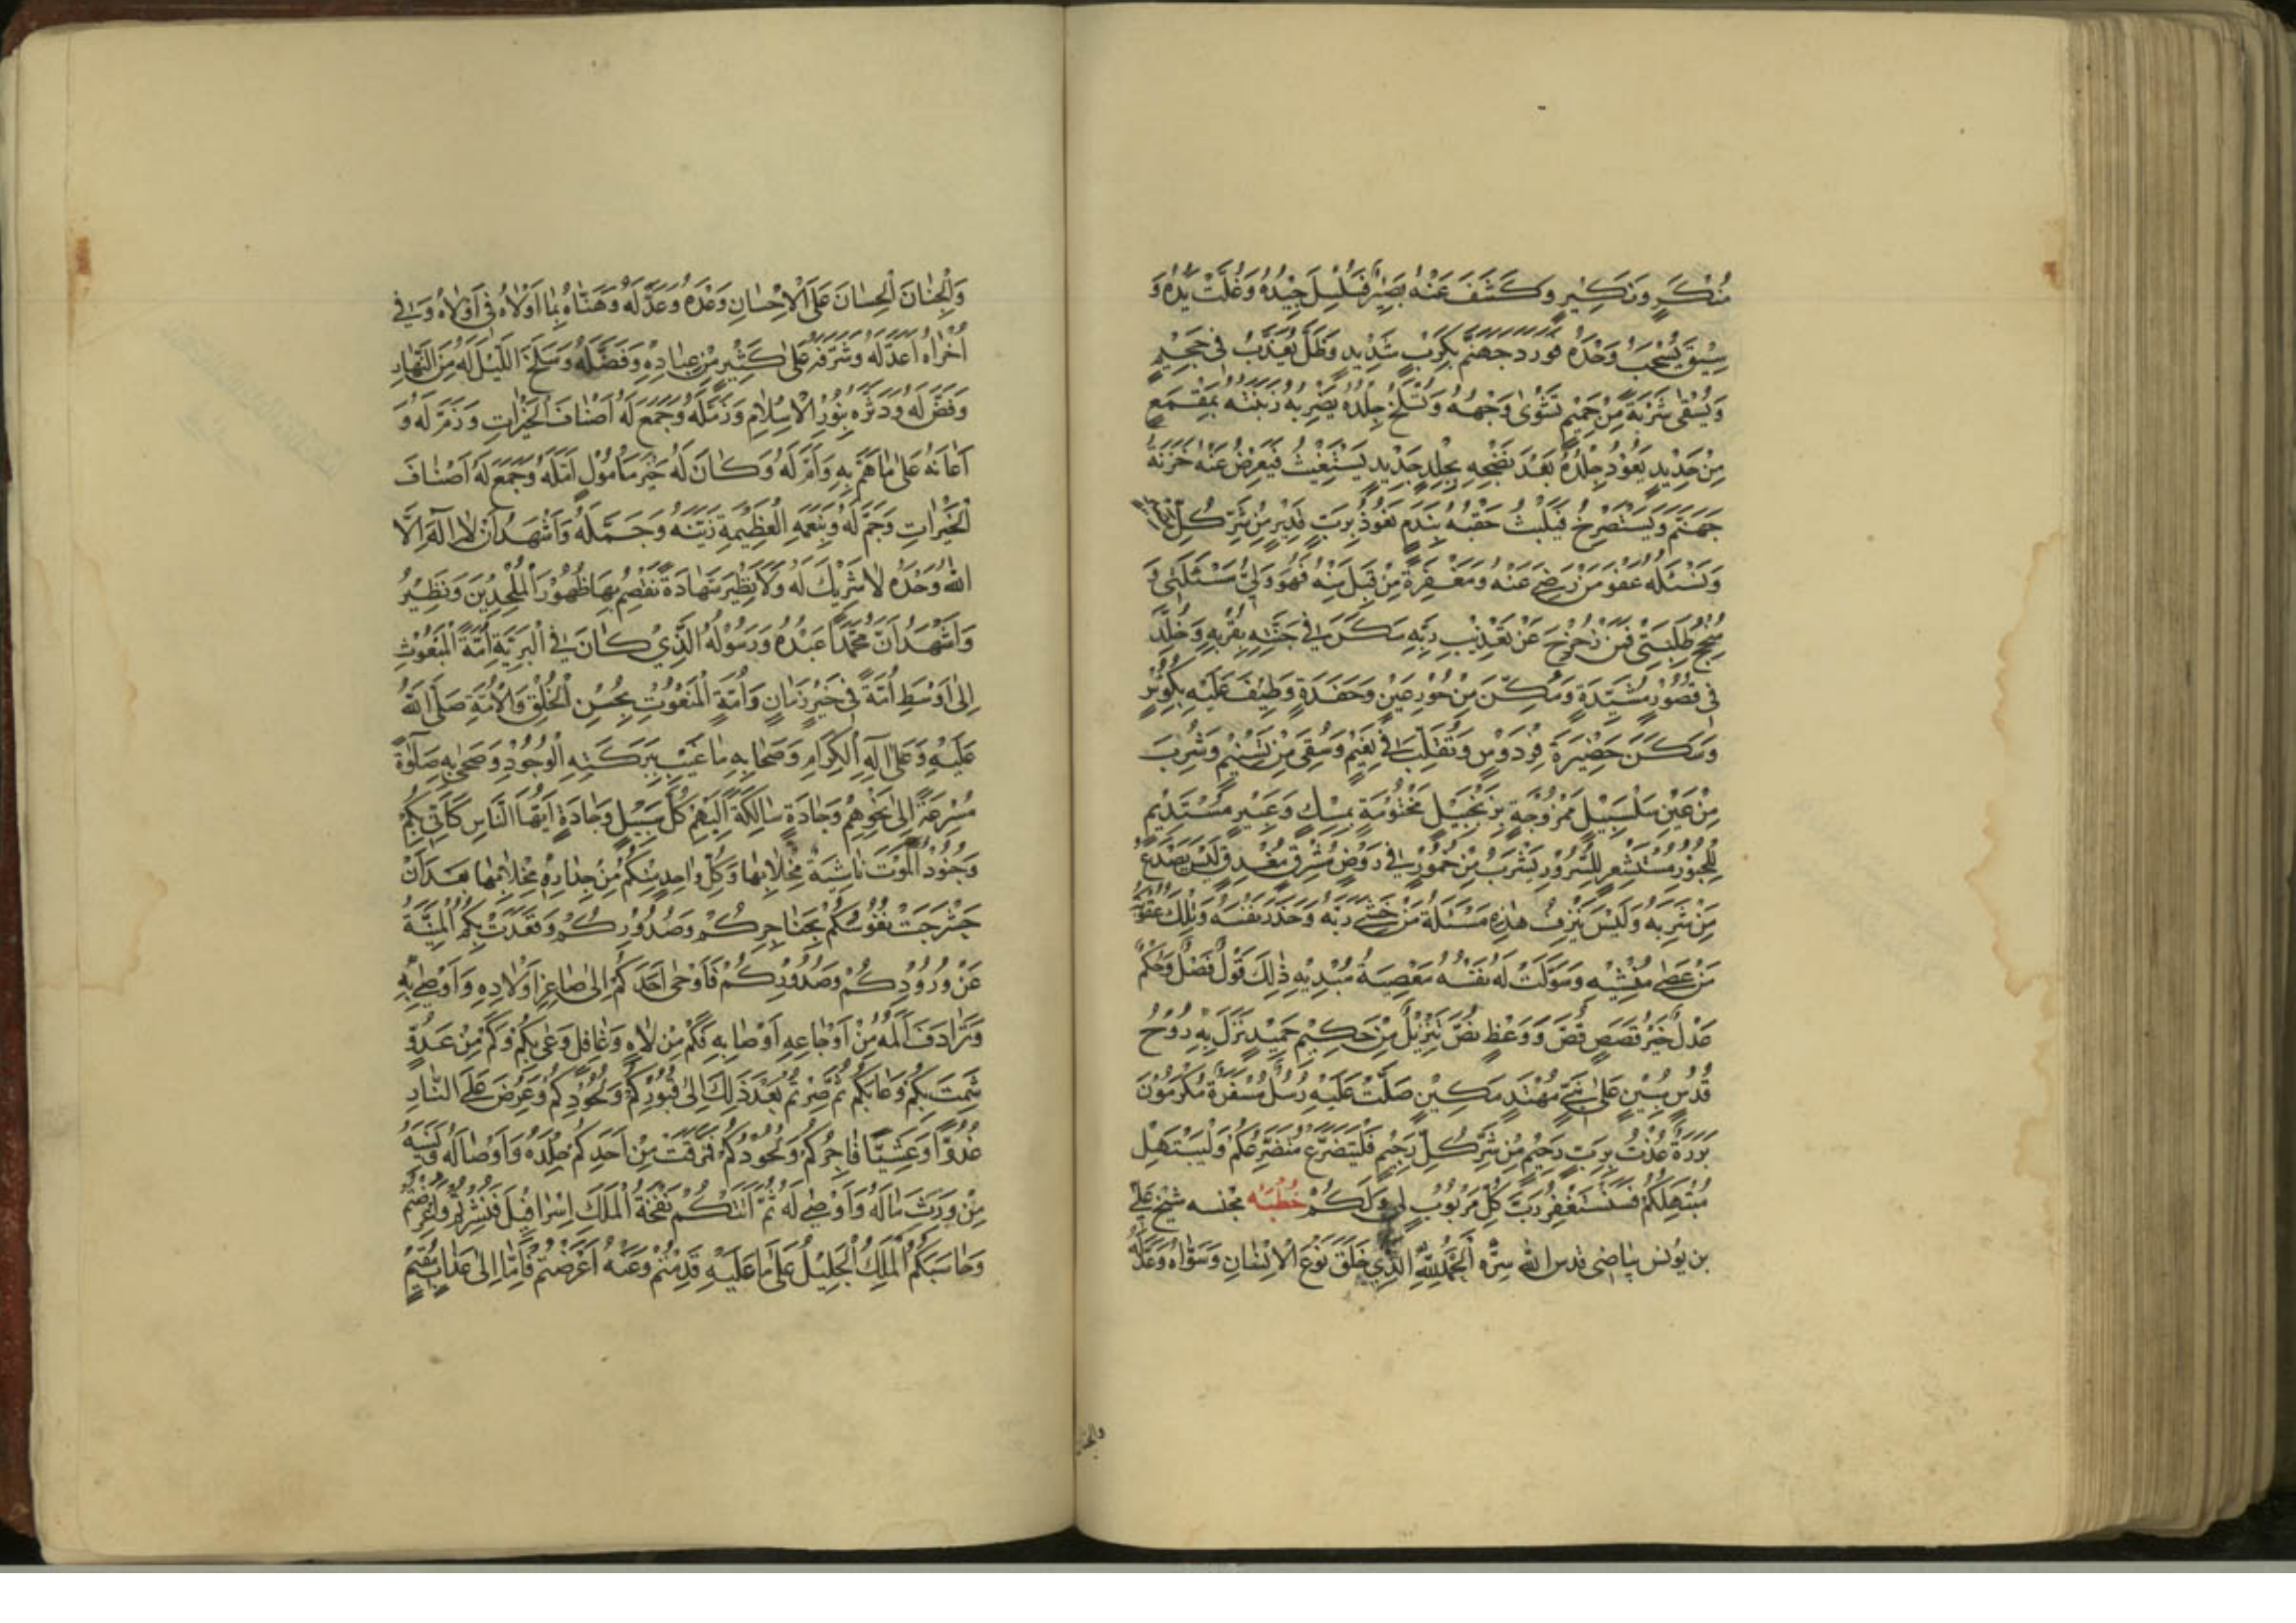 مُنْكَرٍ وَنَكِيْرٍ وَكَشَفَ عَنْهُ بَصِيْرٌ فَسُلْسِلَ جِيْدُهُ وَغُلَّتْ يَدُهُ وَ
سِيْقَ يُسْحَبُ وَحْدَهُ فَوَرَدَ جَهَنَّمَ بِكَرْبٍ شَدِيْدٍ وَظَلَّ يُعَذَّبُ فِى جَحِيْمٍ
وَيُسْقٰى شَرْبَةً مِنْ حَمِيْمٍ تَشْوِىْ وَجْهَهُ وَتَسْلَخُ جِلْدَهُ يَضْرِبُهُ زِبْنِيَتُهُ بِمِقْمَعٍ
مِنْ حَدِيْدٍ يَعُوْدُ جِلْدُهُ بَعْدَ نَضْجِهِ بِجِلْدٍ جَدِيْدٍ يَسْتَغِيْثُ فَيُعْرِضُ عَنْهُ خَزَنَةُ
جَهَنَّمَ وَيَسْتَصْرِخُ فَيَلْبَثُ حَقْبَهُ بِنَدَمٍ نَعُوْذُ بِرَبٍّ قَدِيْرٍ مِنْ شَرِّ كُلِّ
وَنَسْئَلُهُ عَفْوَ مَنْ رَضِىَ عَنْهُ وَمَغْفِرَةَ مَنْ قَبِلَ مِنْهُ فَهُوَ وَلِىُّ مَسْئَلَتِىْ وَ
مُنْجِحُ طَلِبَتِىْ فَمَنْ زُحْزِحَ عَنْ تَعْذِيْبِ رَبِّهِ سَكَنَ فِىْ جَنَّتِهِ بِقُرْبِهِ وَخُلِّدَ
فِى قُصُوْرٍ مُشَيَّدَةٍ وَمُكِّنَ مِنْ حُوْرِ عِيْنٍ وَحَفَدَةٍ وَطِيْفَ عَلَيْهِ بِكُؤُسٍ
وَسَكَنَ حَضِيْرَةَ فِرْدَوْسٍ وَتَقَلَّبَ فِىْ نَعِيْمٍ وَسُقِىَ مِنْ تَسْنِيْمٍ وَشَرِبَ
مِنْ عَيْنِ سَلْسَبِيْلٍ مَمْزُوْجَةٍ بِزَنْجَبِيْلٍ مَخْتُوْمَةٍ بِمِسْكٍ وَعَبِيْرٍ مُسْتَدِيْمٍ
لِلْحُبُوْرِ مُسْتَشْعِرٍ لِلسُّرُوْرِ يَشْرَبُ مِنْ خُمُوْرٍ فِىْ رَوْضٍ مُشْرِقٍ مُغْدِقٍ لَيْسَ يَصْدَعُ
مَنْ شَرِبَهُ وَلَيْسَ يُنْزِفُ هٰذِهِ مَسْئَلَةُ مَنْ خَشِىَ رَبَّهُ وَحَذَّرَ نَفْسَهُ وَتِلْكَ عُقُوْبَةُ
مَنْ عَصٰى مُنْشِيَهُ وَسَوَّلَتْ لَهُ نَفْسُهُ مَعْصِيَةَ مُبْدِيْهِ ذٰلِكَ قَوْلٌ فَصْلٌ وَحُكْمٌ
عَدْلٌ خَيْرُ قَصَصٍ قُصَّ وَوَعْظٍ نُصَّ تَنْزِيْلٌ مِنْ حَكِيْمٍ حَمِيْدٍ نَزَلَ بِهِ رُوْحُ
قُدُسٍ مُبِيْنٍ عَلٰى نَبِىٍّ مُهْتَدٍ مَكِيْنٍ صَلَّتْ عَلَيْهِ رُسُلٌ سَفَرَةٌ مُكَرَّمُوْنَ
بَرَرَةٌ عُذْتُ بِرَبٍّ رَحِيْمٍ مِنْ شَرِّ كُلِّ رَجِيْمٍ فَلْيَتَضَرَّعْ مُتَضَرِّعُكُمْ وَلْيَبْتَهِلْ
مُبْتَهِلُكُمْ فَسَنَسْتَغْفِرُ رَبَّ كُلِّ مَرْبُوْبٍ لِى وَلَكُمْ خُطْبَه مجنسه شيخ على
بن يونس بياضى قدس الله سره اَلْحَمْدُ لِلّٰهِ الَّذِى خَلَقَ نَوْعَ الْاِنْسَانِ وَسَوَّاهُ وَعَدَّلَهُ
والجنان
وَالْجِنَانَ الْحِسَانَ عَلَى الْاِحْسَانِ وَعَدَهُ وَعَدَّ لَهُ وَهَنَّاهُ بِمَا اَوْلَاهُ فِى اُوْلَاهُ وَفِى
اُخْرَاهُ اَعَدَّ لَهُ وَشَرَّفَهُ عَلٰى كَثِيْرٍ مِنْ عِبَادِهِ وَفَضَّلَهُ وَسَلَخَ اللَّيْلَ لَهُ مِنَ النَّهَارِ
وَفَضَّ لَهُ وَدَثَّرَهُ بِنُوْرِ الْاِسْلَامِ وَزَمَّلَهُ وَجَمَعَ لَهُ اَصْنَافَ الْخَيْرَاتِ وَزَمَّ لَهُ وَ
اَعَانَهُ عَلٰى مَا هَمَّ بِهِ وَاَمَّ لَهُ وَكَانَ لَهُ خَيْرَ مَأْمُوْلٍ اَمَّلَهُ وَجَمَعَ لَهُ اَصْنَافَ
الْخَيْرَاتِ وَجَمَّ لَهُ وَبِنِعَمِهِ الْعَظِيْمَةِ زَيَّنَهُ وَجَمَّلَهُ وَاَشْهَدُ اَنْ لَا اِلٰهَ اِلَّا
اللهُ وَحْدَهُ لَا شَرِيْكَ لَهُ وَلَا نَظِيْرَ شَهَادَةً نَقْصِمُ بِهَا ظُهُوْرَ الْمُلْحِدِيْنَ وَنَطِيْرُ
وَاَشْهَدُ اَنَّ مُحَمَّدًا عَبْدُهُ وَرَسُوْلُهُ الَّذِىْ كَانَ فِى الْبَرِيَّةِ اُمَّةً الْمَبْعُوْثِ
اِلٰى اَوْسَطِ اُمَّةٍ فِى خَيْرِ زَمَانٍ وَاُمَّةٍ الْمَنْعُوْتِ بِحُسْنِ الْخُلْقِ وَالْاُمَّةِ صَلَّى اللهُ
عَلَيْهِ وَعَلٰى اٰلِهِ الْكِرَامِ وَصَحَابِهِ مَا غَيَّبَ بِبَرَكَتِهِ الْوُجُوْدُ وَصَحٰى بِهِ صَلٰوةً
مُسْرِعَةً اِلٰى نَحْوِهِمْ وَجَادَّةً سَالِكَةً اِلَيْهِمْ كُلَّ سَبِيْلٍ وَجَادَّةٍ اَيُّهَا النَّاسُ كَاَنِّى بِكُمْ
وَجُنُوْدُ الْمَوْتِ نَاشِبَةٌ مِخْلَابَهَا وَكُلُّ وَاحِدٍ مِنْكُمْ مِنْ حِذَارِهِ مَخْلَابِهَا بَعْدَ اَنْ
حَشْرَجَتْ نُفُوْسُكُمْ بِحَنَاجِرِكُمْ وَصُدُوْرِكُمْ وَقَعَدَتْ بِكُمُ الْمَنِيَّةُ
عَنْ وُرُوْدِكُمْ وَصُدُوْرِكُمْ فَاَوْحٰى اَحَدُكُمْ اِلٰى صَاغِرِ اَوْلَادِهِ وَاَوْصٰى بِهِ
وَتَرَادَفَ اَلَمُهُ مِنْ اَوْجَاعِهِ اَوْصَابِهِ فَكَمْ مِنْ لَاهٍ وَغَافِلٍ وَعٰى بِكُمْ وَكَمْ مِنْ عَدُوٍّ
شَمِتَ بِكُمْ وَعَابَكُمْ ثُمَّ صِرْتُمْ بَعْدَ ذٰلِكَ اِلٰى قُبُوْرِكُمْ وَلُحُوْدِكُمْ وَعُرِضَ عَلَى النَّارِ
غُدُوًّا وَعَشِيًّا فَاجِرُكُمْ وَلُحُوْدُكُمْ فَمُزِّقَتْ مِنْ اَحَدِكُمْ جِلْدُهُ وَاَوْصَالُهُ وَنَسِيَهُ
مَنْ وَرِثَ مَالَهُ وَاَوْصٰى لَهُ ثُمَّ اَتَتْكُمْ نَفْخَةُ الْمَلَكِ اِسْرَافِيْلَ فَنُشِرْتُمْ وَعُرِضْتُمْ
وَحَاسَبَكُمُ الْمَلِكُ الْجَلِيْلُ عَلٰى مَا عَلَيْهِ قَدِمْتُمْ وَعَنْهُ اَعْرَضْتُمْ فَاِمَّا اِلٰى عَذَابٍ مُقِيْمٍ